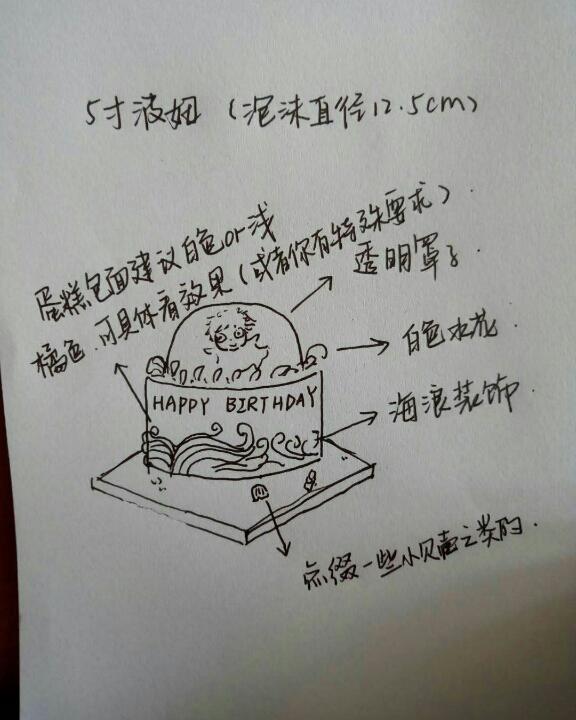 5寸波妞（泡沫直径12.5cm）
蛋糕包面建议白色or浅
橘色.可具体看效果（或者你有特殊要求）.
透明罩子.
白色水花.
HAPPY BIRTHDAY
海浪装饰.
点缀一些小贝壳之类的.